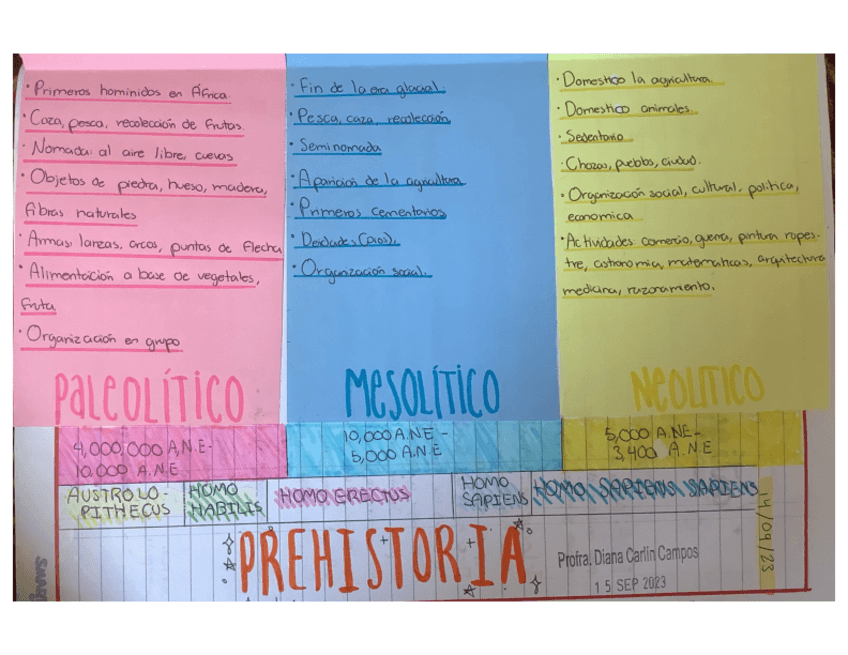 · Primeros hominidos en África
· Caza, pesca, recolección de frutas.
· Nomada: al aire libre, cuevas
· Objetos de piedra, hueso, madera,
fibras naturales
· Armas: lanzas, arcos, puntas de flecha
· Alimentación a base de vegetales,
fruta
· Organización en grupo
PALEOLÍTICO
· Fin de la era glacial.
· Pesca, caza, recolección
· Seminomada
· Aparición de la agricultura
· Primeros cementarios
· Deidades (Dios).
· Organización social.
MESOLÍTICO
· Domestico la agricultura.
· Domestico animales.
· Sedentario
· Chozas, pueblos, ciudad.
· Organización social, cultural, politica,
economica
· Actividades: comercio, guerra, pintura rupes-
tre, astronomia, matematicas, arquitectura
medicina, razonamiento.
NEOLITICO
4,000,000 A.N.E-
10.000 A.N.E
10,000 A.N.E -
5,000 A.N.E
5,000 A.NE-
3,400 A.N.E
AUSTROLO-
PITHECUS
HOMO
HABILIS
HOMO ERECTUS
HOMO
SAPIENS
HOMO SAPIENS SAPIENS
PREHISTORIA
Profra. Diana Carlin Campos
15 SEP 2023
14/09/23